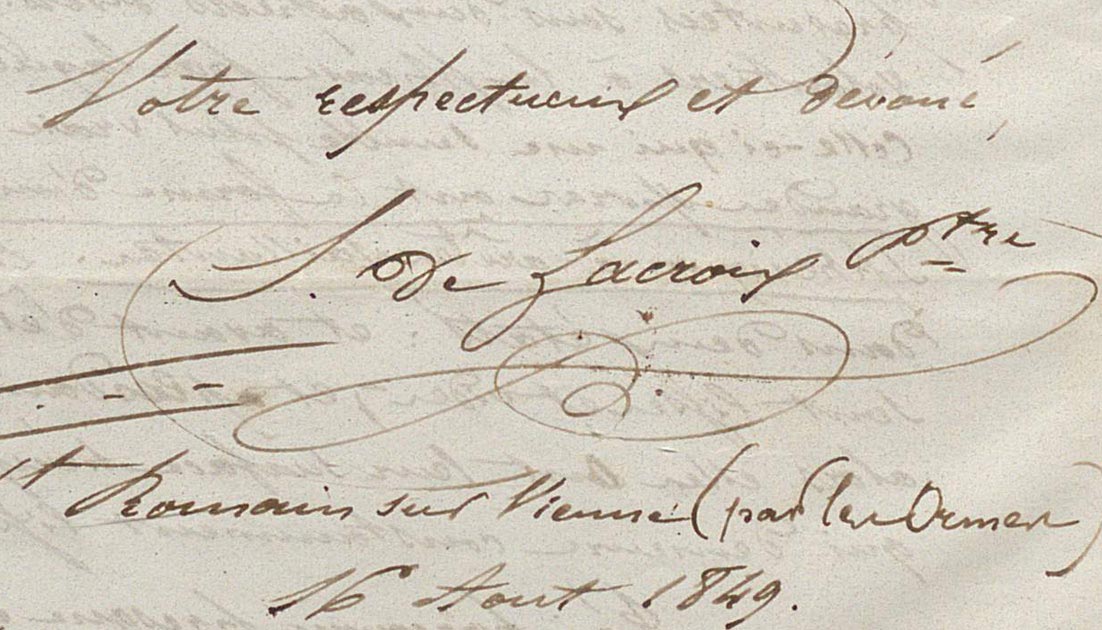 Votre respectueux et dévoué,
S. de Lacroix ptre
St Romain sur Vienne (par les Ormes)
16 Aout 1849.